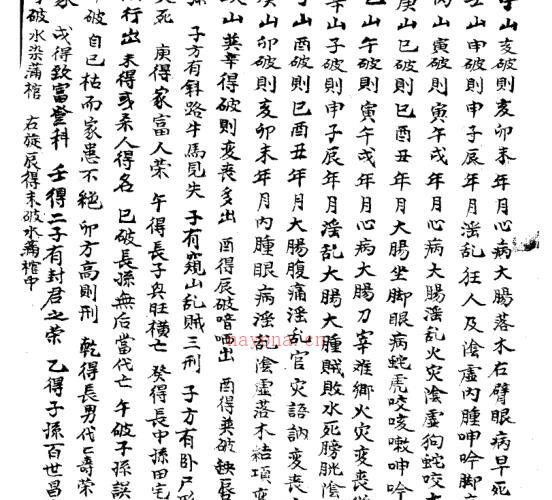 亥破則亥卯未年月心病大腸落木右臂眼病早死
山申破則申子辰年月淫乱狂人及陰虛內腫呻吟脚
山寅破則寅午戌年月心病大腸淫乱火灾陰虛狗蛇咬
庚山巳破則巳酉丑年月大腸坐脚眼病蛇虎咬咳嗽呻吟
山午破則寅午戌年月心病大腸刀宰离鄉火灾変喪
辛山子破則申子辰年月淫乱大腸大腫賊敗水死膀胱陰
山酉破則巳酉丑年月大腸腹痛淫乱官灾語訥変喪
山卯破則亥卯未年月內腫眼病淫乱陰虛落木結項変
山巽辛得破則変喪多出 酉得辰破喑啞出 酉得巽破缺唇
子方有斜路牛馬見失 子有窺山乱賊三刑 子方有卧尸
死 庚得家富人荣 午得長子興旺横亡 癸得長中孫田宅
行出 未得或杀人得名 巳破長孫無后當代亡 午破子孫誤
破自己枯而家患不絕 卯方高則刑 乾得長男代亡壽荣
或得致富登科 壬得二子有封君之荣 乙得子孫百世昌
破水染滿棺 右旋辰得未破水滿棺中
nayona.cn